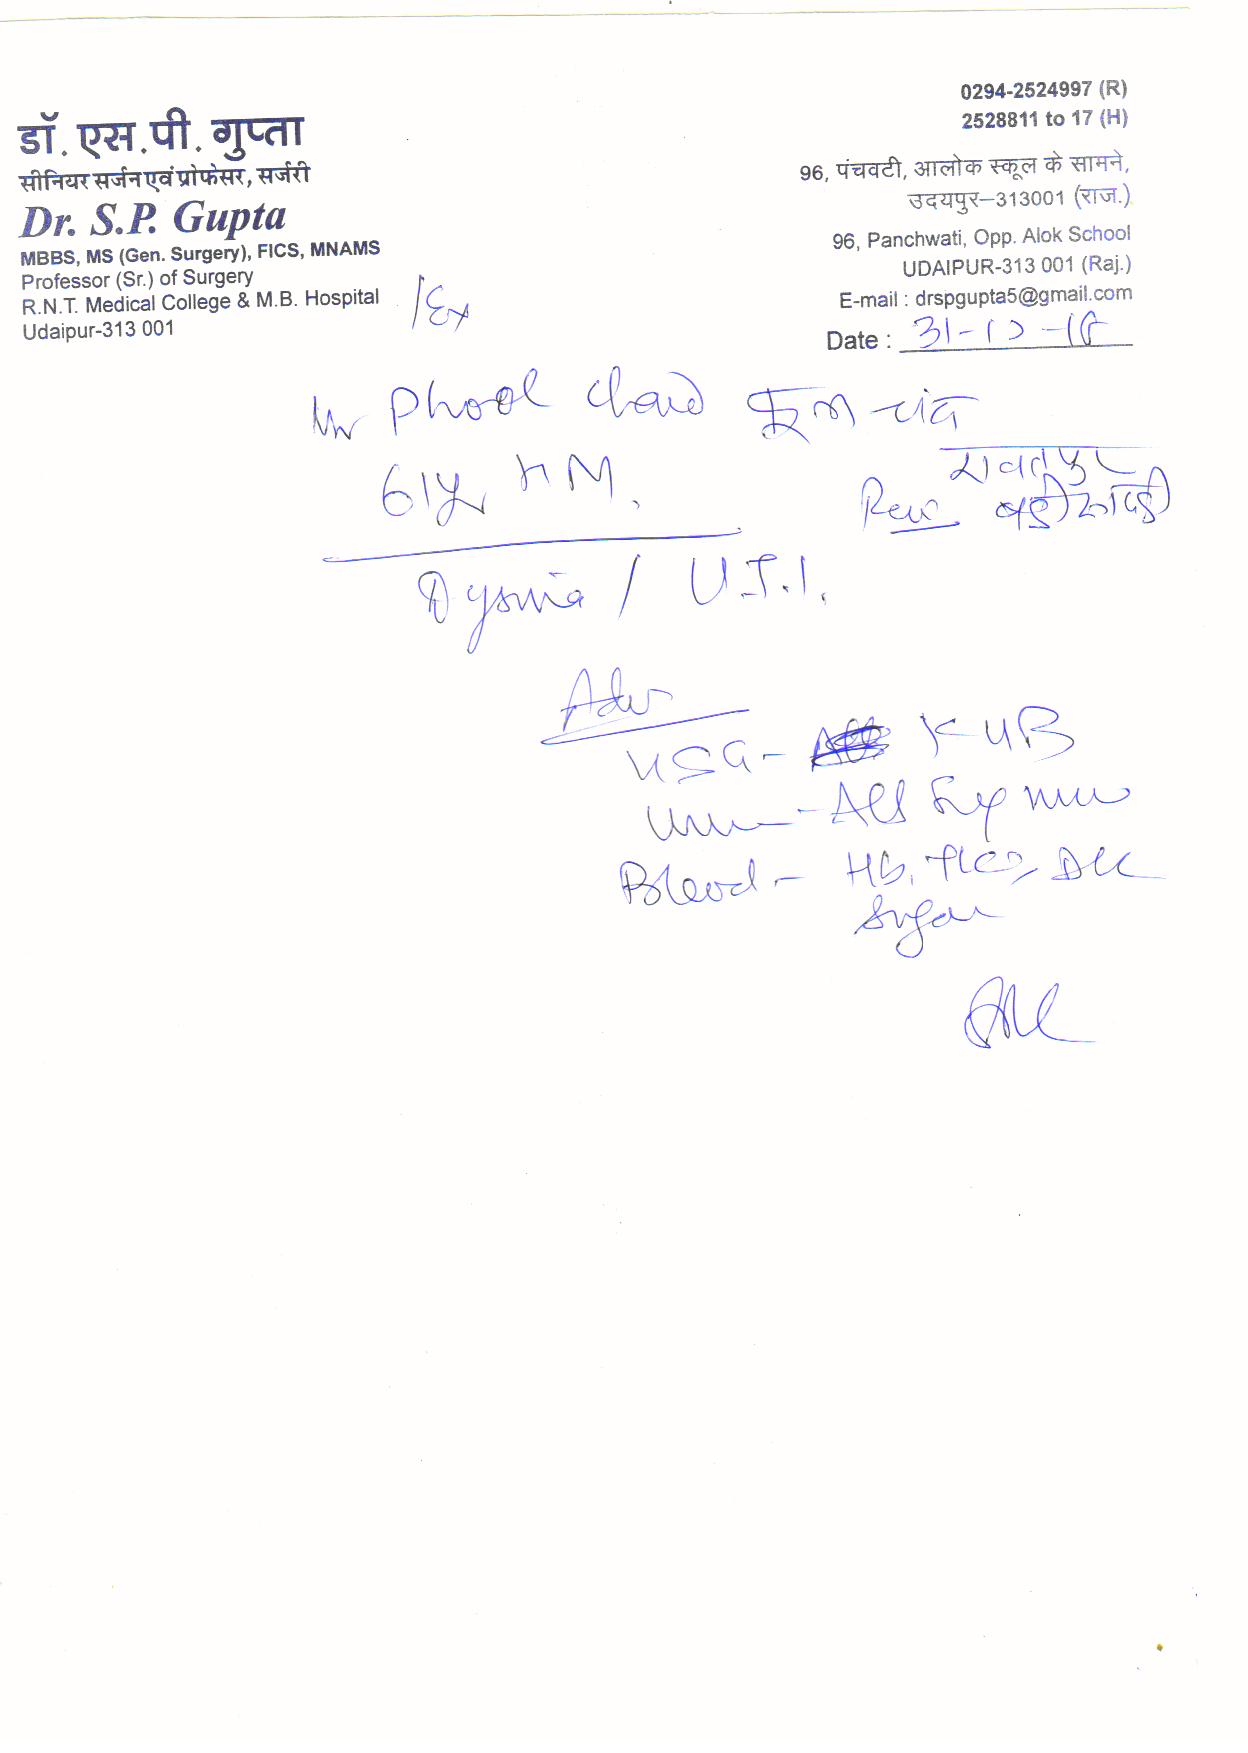 0294-2524997 (R)
2528811 to 17 (H)
डॉ. एस.पी. गुप्ता
सीनियर सर्जन एवं प्रोफेसर, सर्जरी
Dr. S.P. Gupta
MBBS, MS (Gen. Surgery), FICS, MNAMS
Professor (Sr.) of Surgery
R.N.T. Medical College & M.B. Hospital
Udaipur-313 001
96, पंचवटी, आलोक स्कूल के सामने,
उदयपुर–313001 (राज.)
96, Panchwati, Opp. Alok School
UDAIPUR-313 001 (Raj.)
E-mail : drspgupta5@gmail.com
Date : 31-12-16
/Ex
Mr Phool Chand फूल चंद
61yr HM.
रावतपुर
बड़ी
Dysuria / U.T.I.
Adv
USG- KUB
Urine - Alb Sug micro
Blood - Hb, TLC, DLC
Sugar